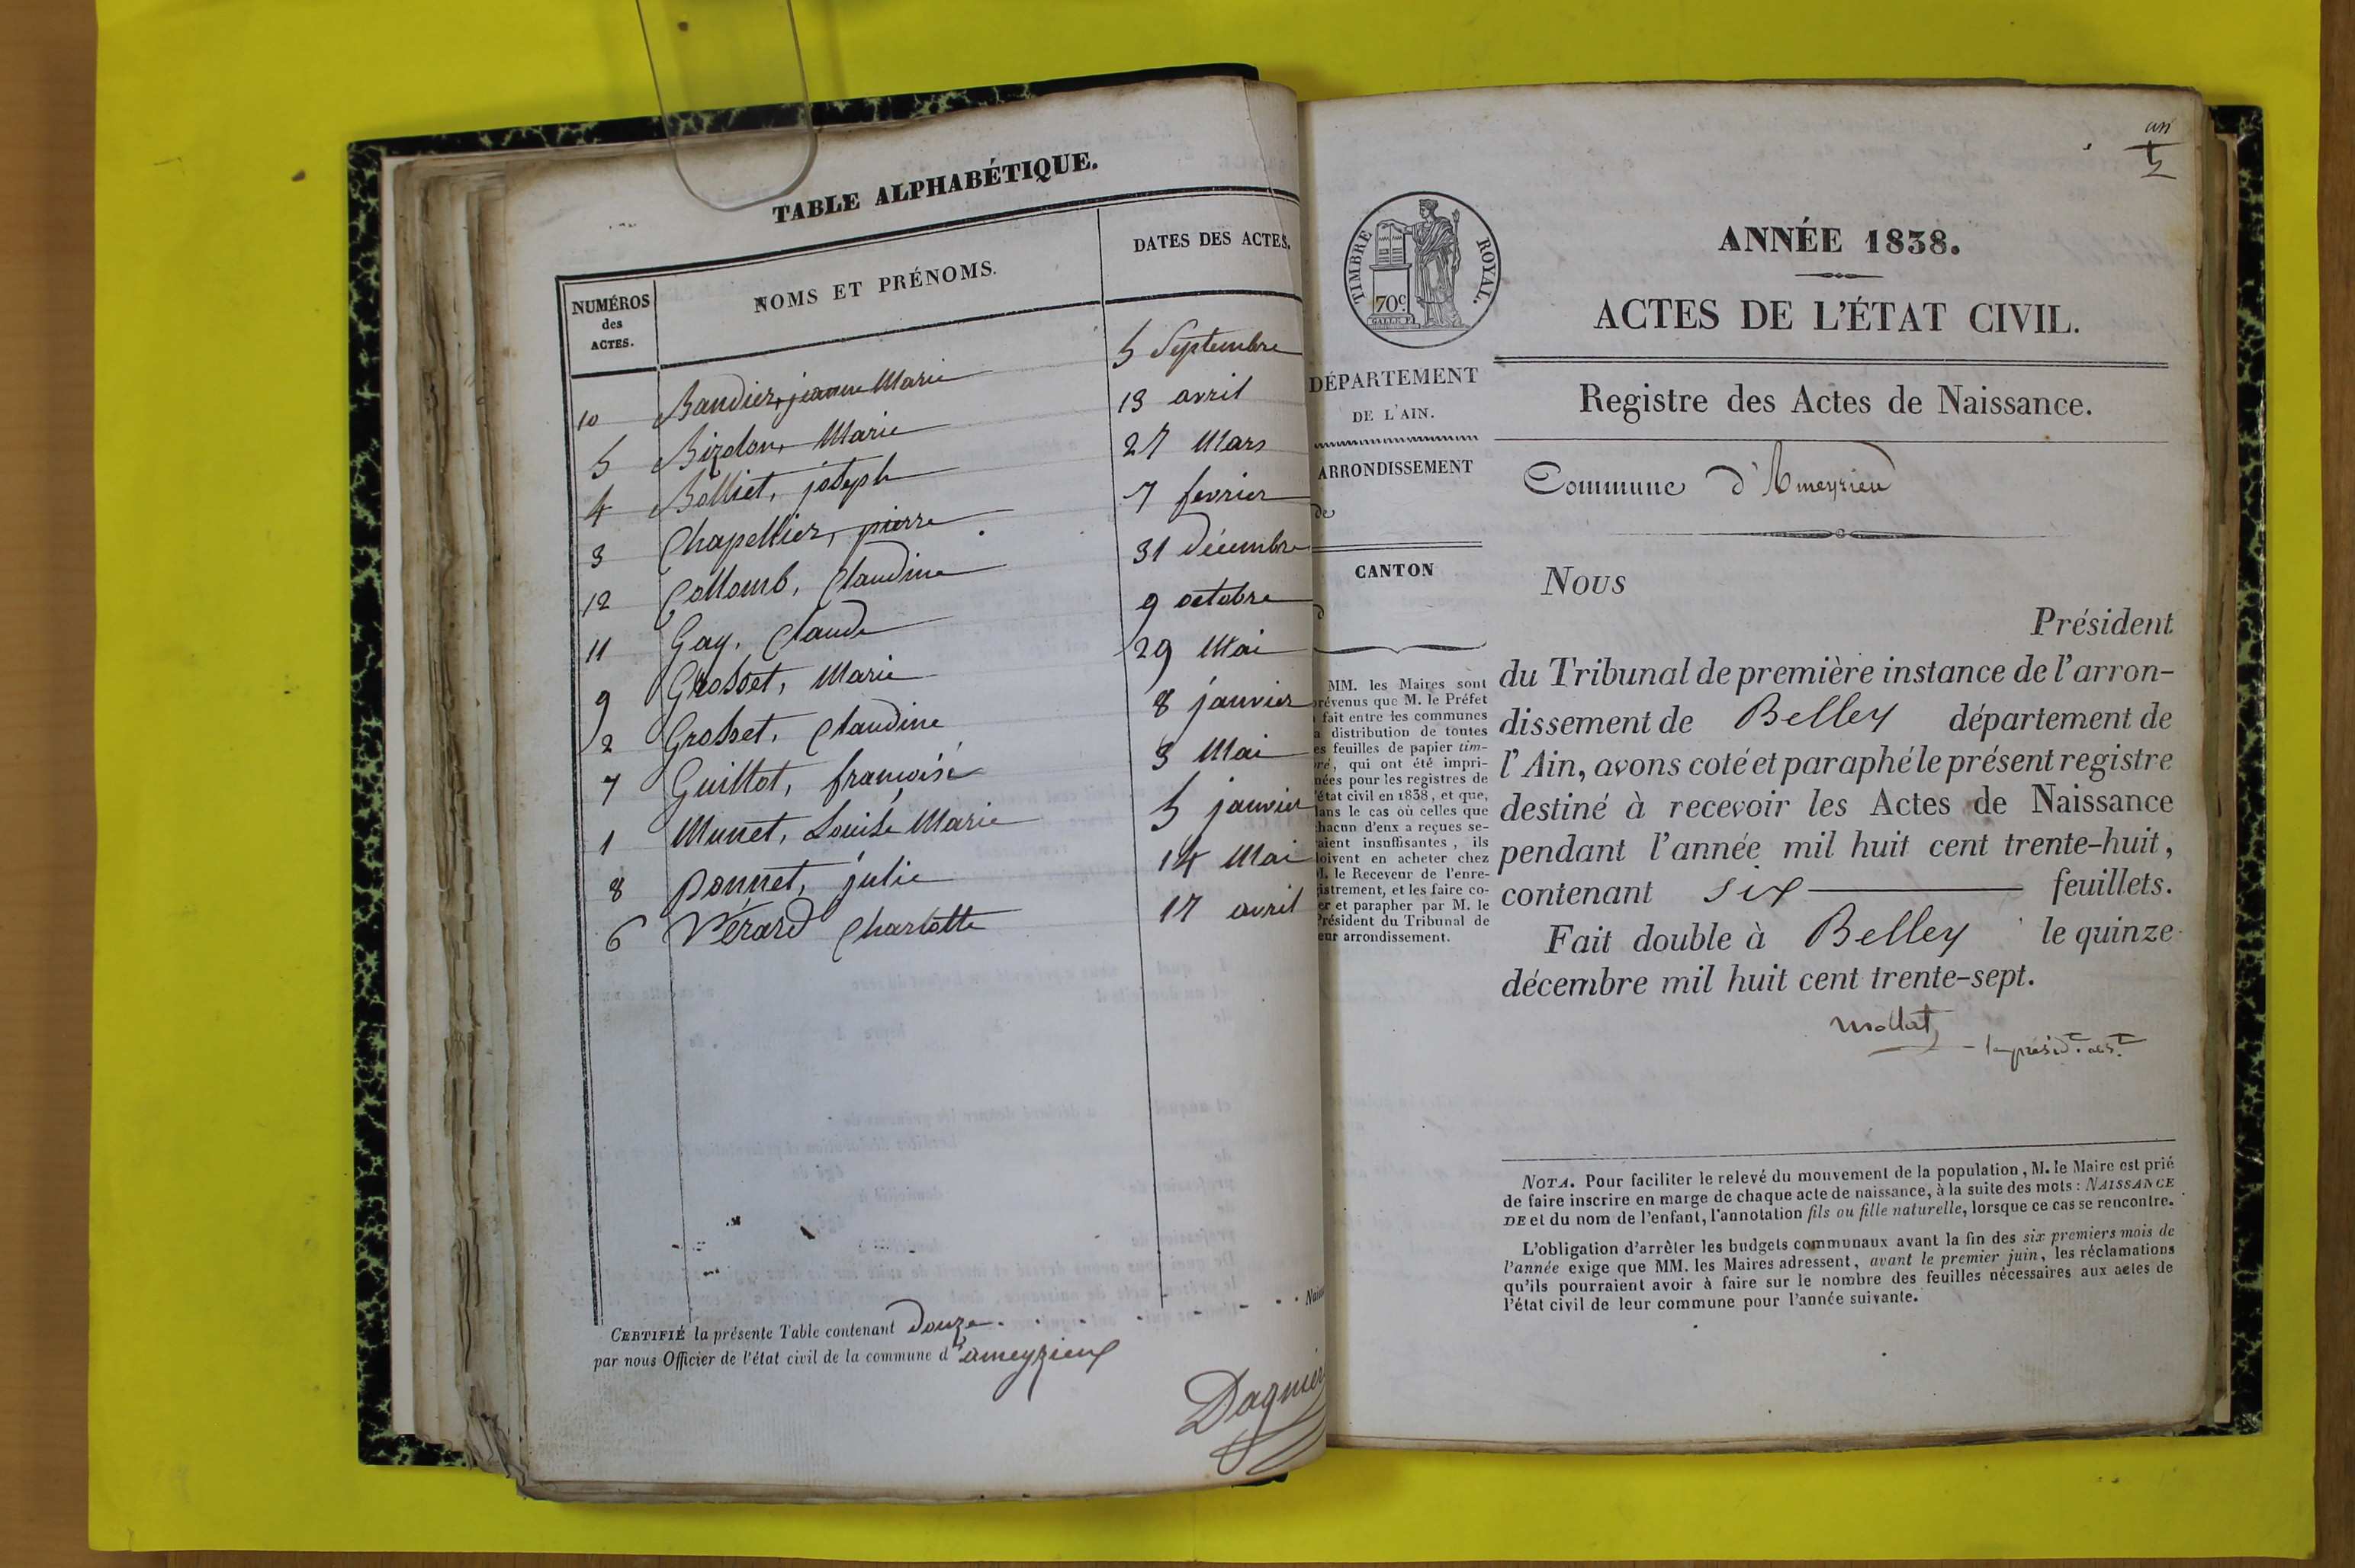 TABLE ALPHABÉTIQUE.
NUMÉROS des ACTES. NOMS ET PRÉNOMS. DATES DES ACTES.
10 Baudier, jeanne Marie 5 Septembre
5 Bizolon, Marie 13 avril
4 Bolliet, joseph 27 Mars
3 Chapellier, pierre 7 fevrier
12 Collomb, Claudine 31 Décembre
11 Gay, Claude 9 octobre
9 Grosset, Marie 29 Mai
2 Grosset, Claudine 8 janvier
7 Guillot, françoise 3 Mai
1 Munet, Louise Marie 5 janvier
8 ponnet, julie 14 Mai
6 Vérard Charlotte 17 avril
CERTIFIÉ la présente Table contenant Douze
par nous Officier de l'état civil de la commune d'ameyzieux
Dagnier
un
TIMBRE ROYAL.
70c.
GALLE F.
DÉPARTEMENT
DE L'AIN.
ARRONDISSEMENT
de
CANTON
d
MM. les Maires sont
prévenus que M. le Préfet
a fait entre les communes
la distribution de toutes
les feuilles de papier tim-
bré, qui ont été impri-
mées pour les registres de
l'état civil en 1838, et que,
dans le cas où celles que
chacun d'eux a reçues se-
raient insuffisantes, ils
doivent en acheter chez
M. le Receveur de l'enre-
gistrement, et les faire co-
ter et parapher par M. le
Président du Tribunal de
leur arrondissement.
ANNÉE 1838.
ACTES DE L'ÉTAT CIVIL.
Registre des Actes de Naissance.
Commune d'Ameyzieu
Nous
Président
du Tribunal de première instance de l'arron-
dissement de Belley département de
l'Ain, avons coté et paraphé le présent registre
destiné à recevoir les Actes de Naissance
pendant l'année mil huit cent trente-huit,
contenant six feuillets.
Fait double à Belley le quinze
décembre mil huit cent trente-sept.
Mollet
NOTA. Pour faciliter le relevé du mouvement de la population, M. le Maire est prié
de faire inscrire en marge de chaque acte de naissance, à la suite des mots: NAISSANCE
DE et du nom de l'enfant, l'annotation fils ou fille naturelle, lorsque ce cas se rencontre.
L'obligation d'arrêter les budgets communaux avant la fin des six premiers mois de
l'année exige que MM. les Maires adressent, avant le premier juin, les réclamations
qu'ils pourraient avoir à faire sur le nombre des feuilles nécessaires aux actes de
l'état civil de leur commune pour l'année suivante.